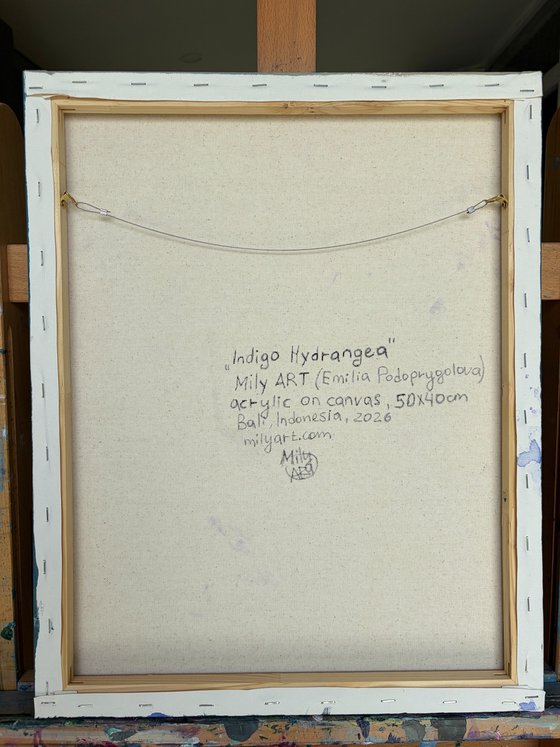 „Indigo Hydrangea"
Mily ART (Emilia Podoprygolova)
acrylic on canvas, 50x40cm
Bali, Indonesia, 2026
milyart.com
Mily
ART